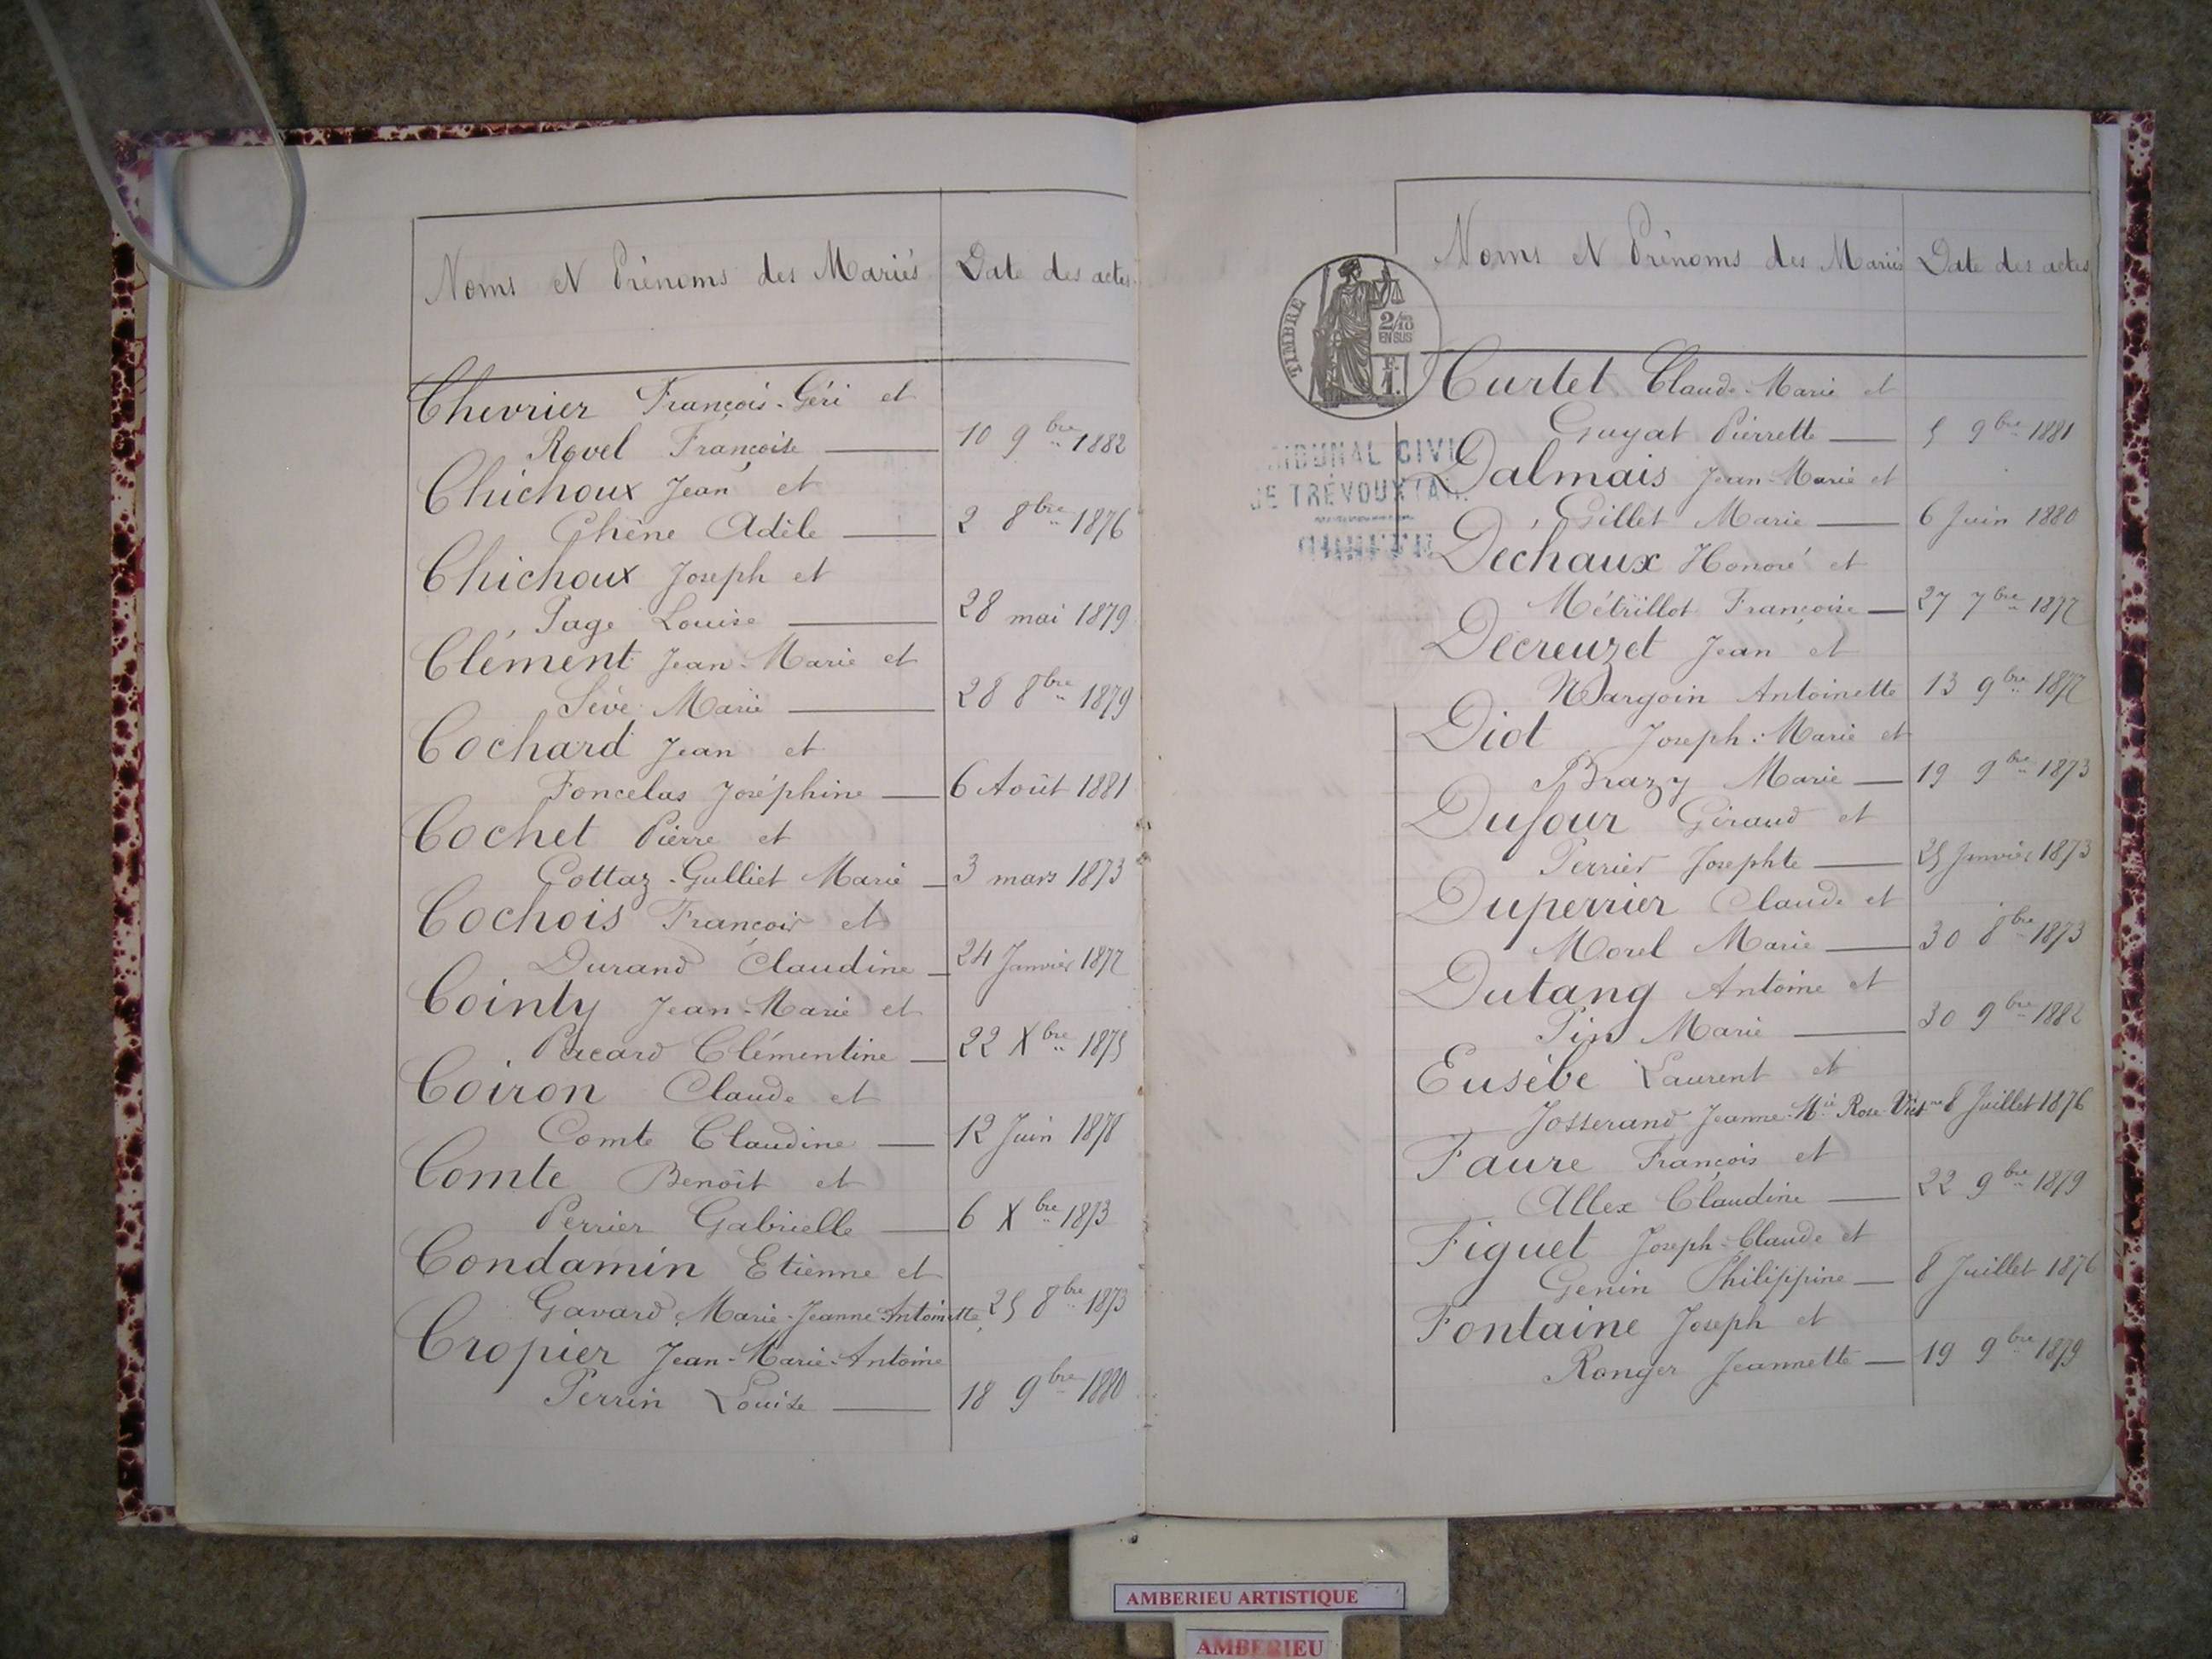 Noms et Prénoms des Mariés Date des actes.
Chevrier François-Géri et
Revel Françoise 10 9bre 1882
Chichoux Jean et
Chêne Adèle 2 8bre 1876
Chichoux Joseph et
Page Louise 28 mai 1879
Clément Jean-Marie et
Sève Marie 28 8bre 1879
Cochard Jean et
Foncelas Joséphine 6 Août 1881
Cochet Pierre et
Cottaz-Gulliet Marie 3 mars 1873
Cochois François et
Durand Claudine 24 Janvier 1877
Cointy Jean-Marie et
Pacard Clémentine 22 Xbre 1875
Coiron Claude et
Comte Claudine 12 Juin 1878
Comte Benoît et
Perrier Gabrielle 6 Xbre 1873
Condamin Etienne et
Gavard Marie-Jeanne-Antoinette 25 8bre 1873
Cropier Jean-Marie-Antoine
Perrin Louise 18 9bre 1880
TIMBRE
2/10
EN SUS
F.
1.
TRIBUNAL CIVIL
DE TRÉVOUX (AIN)
Noms et Prénoms des Mariés Date des actes
Curtet Claude-Marie et
Guyat Pierrette 5 9bre 1881
Dalmais Jean-Marie et
Gillet Marie 6 Juin 1880
Dechaux Honoré et
Métrillot Françoise 27 7bre 1877
Decreuzet Jean et
Margoin Antoinette 13 9bre 1877
Diot Joseph-Marie et
Brazy Marie 19 9bre 1873
Dufour Giraud et
Perrier Josephte 25 Janvier 1873
Duperrier Claude et
Morel Marie 30 8bre 1873
Dutang Antoine et
Pin Marie 30 9bre 1882
Eusèbe Laurent et
Josserand Jeanne-Mie Rose Victne 8 Juillet 1876
Faure François et
Allex Claudine 22 9bre 1879
Figuet Joseph-Claude et
Genin Philippine 8 Juillet 1876
Fontaine Joseph et
Ronger Jeannette 19 9bre 1879
AMBERIEU ARTISTIQUE
AMBERIEU